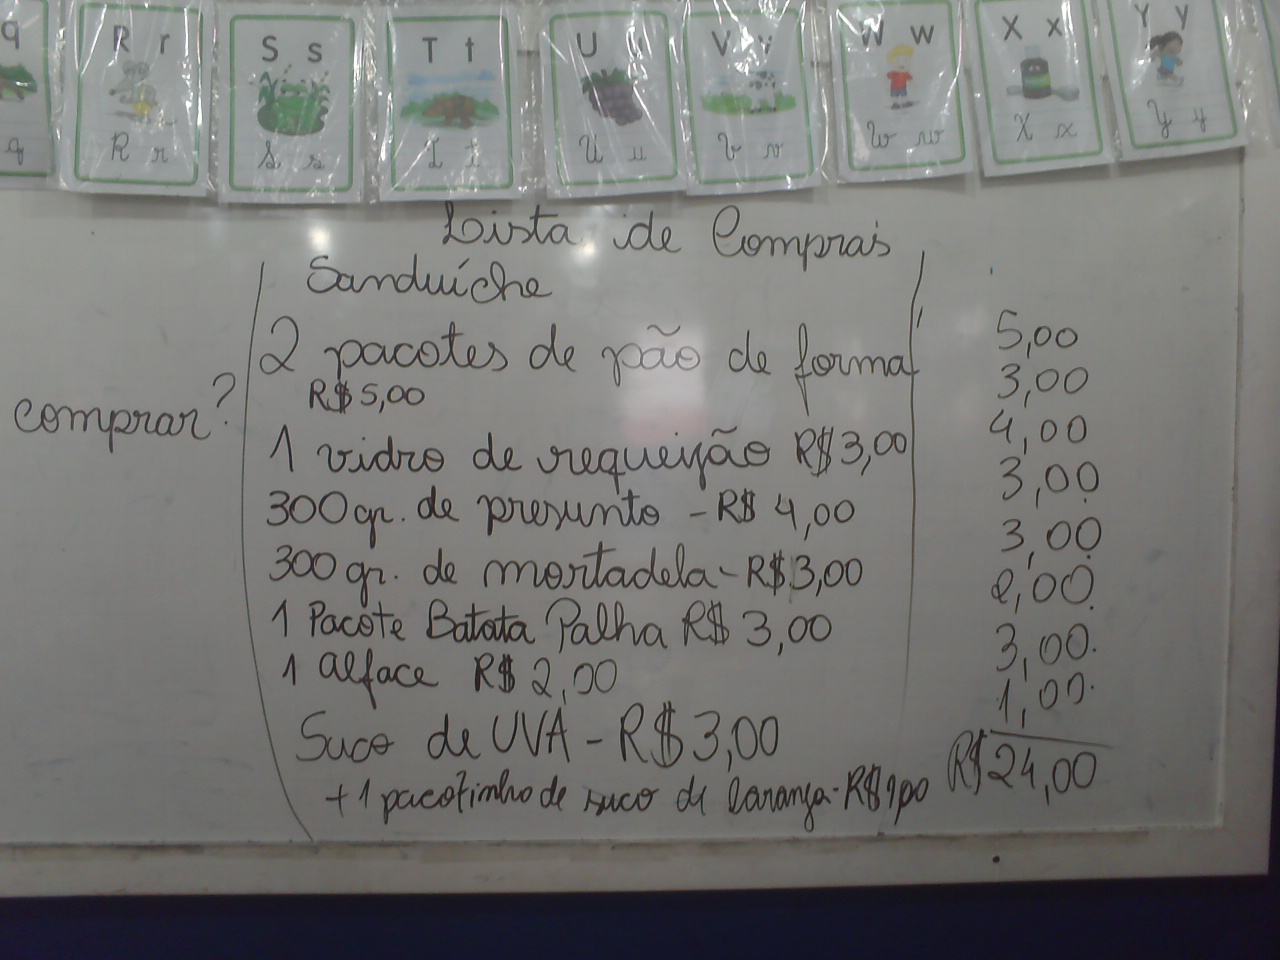 q
q
R r
R r
S s
S s
T t
T t
U u
U u
V v
V v
W w
W w
X x
X x
Y y
Y y
Lista de Compras
Sanduíche
2 pacotes de pão de forma
R$ 5,00
comprar?
1 vidro de requeijão R$ 3,00
300 gr. de presunto - R$ 4,00
300 gr. de mortadela - R$ 3,00
1 Pacote Batata Palha R$ 3,00
1 alface R$ 2,00
Suco de UVA - R$ 3,00
+ 1 pacotinho de suco de laranja - R$ 1,00
5,00
3,00
4,00
3,00
3,00
2,00
3,00
1,00
R$ 24,00